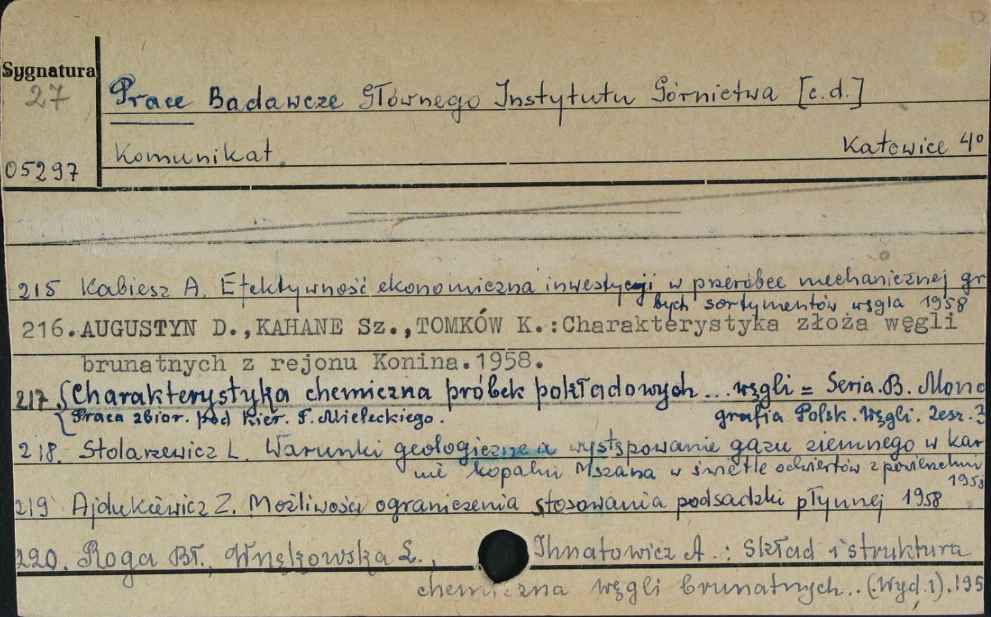 Sygnatura
27
Prace Badawcze Głównego Instytutu Górnictwa [c.d.]
Komunikat.
Katowice 4°
05297
215 Kabiesz A. Efektywność ekonomiczna inwestycji w przeróbce mechanicznej gr
bych sortymentów węgla 1958
216. AUGUSTYN D., KAHANE Sz., TOMKÓW K.: Charakterystyka złoża węgli
brunatnych z rejonu Konina. 1958.
217 { Charakterystyka chemiczna próbek pokładowych ... węgli = Seria. B. Mono
Praca zbior. pod kier. T. Mieleckiego. grafia Polsk. Węgli. Zesz. 3
218. Stolarzewicz L. Warunki geologiczne a występowanie gazu ziemnego w kar
nie kopalni Mszana w świetle odwiertów z powierzchni
1958
219 Ajdukiewicz Z. Możliwości ograniczenia stosowania podsadzki płynnej 1958
220. Roga Bł., Wnękowska L., Ihnatowicz A.: Skład i struktura
chemiczna węgli brunatnych.. (Wyd.1). 195